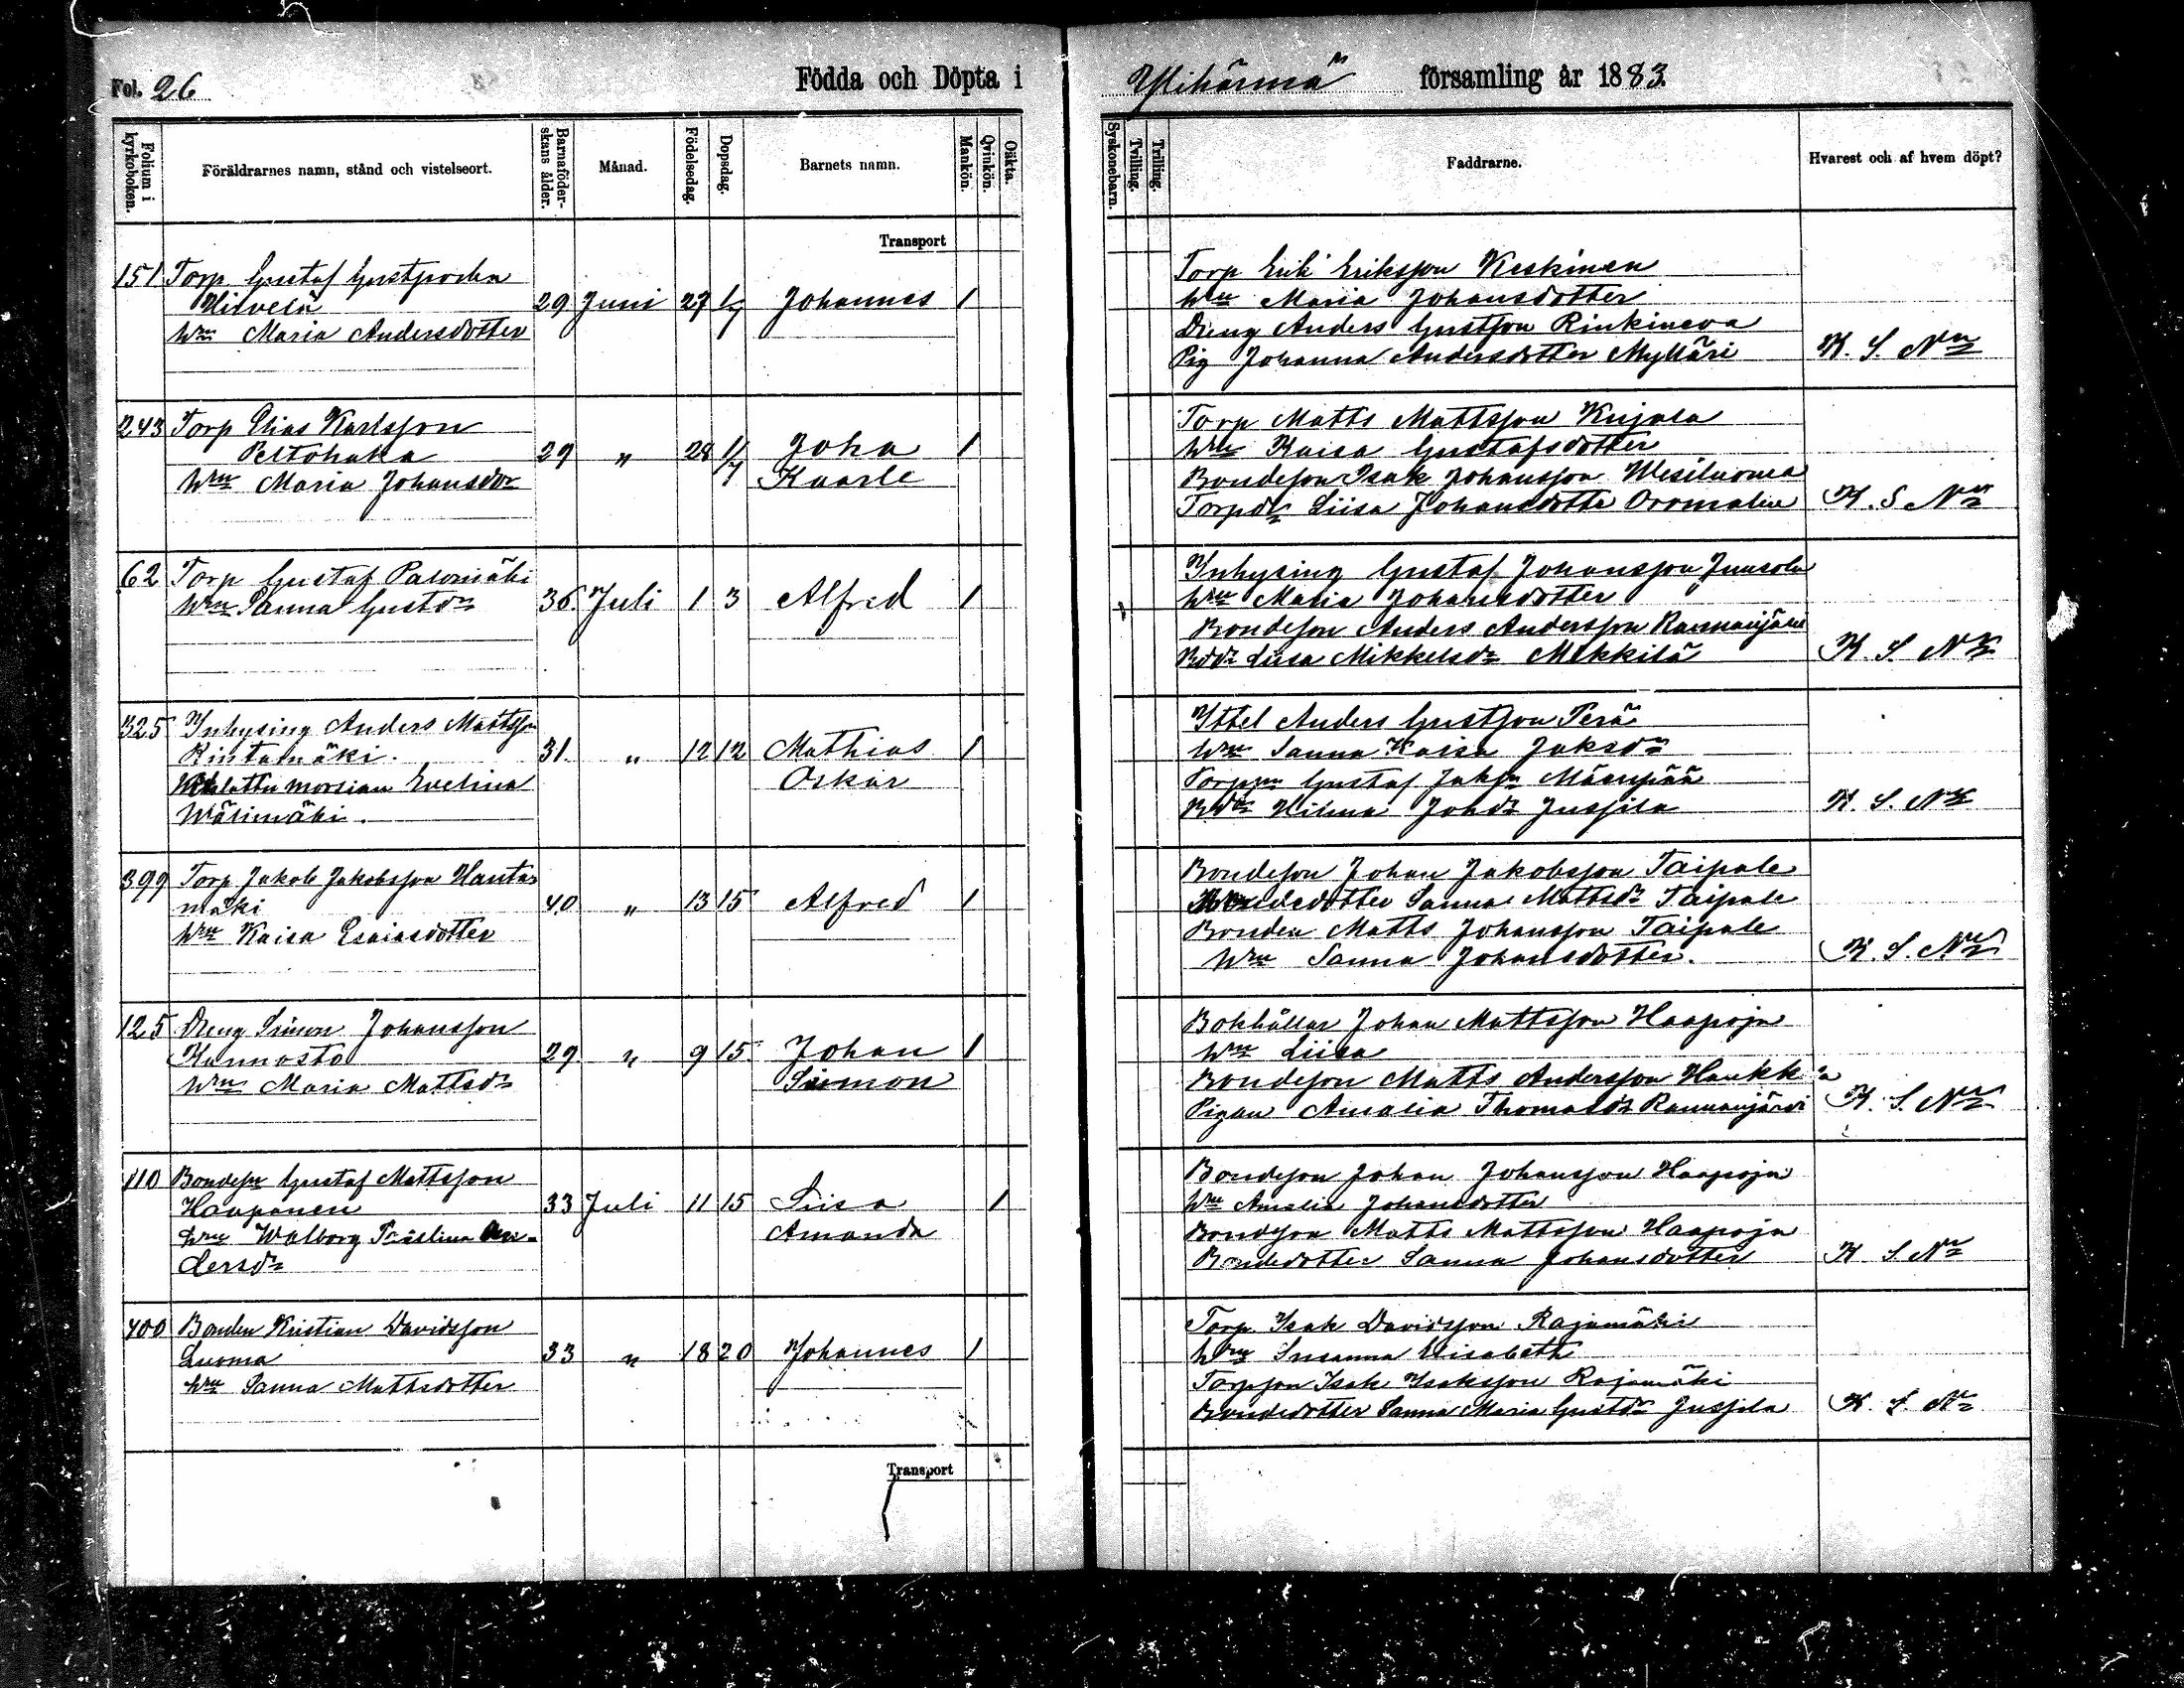 Fol. 26 Födda och Döpta i Ylihärmä församling år 1883.
Folium i kyrkoboken. Föräldrarnes namn, stånd och vistelseort. Barnaföderskans ålder. Månad. Födelsedag. Dopsdag. Barnets namn. Mankön. Qvinkön. Oäkta. Syskonebarn. Tvilling. Trilling. Faddrarne. Hvarest och af hvem döpt?
Transport
151 Torp Gustaf
29 Juni 27 1/7 Johannes 1
Hru Maria Andersdotter
Torp Erik Eriksson Keskinen
Hru Maria Johansdotter
Dreng Anders Gustsson Rinkineva
Pig Johanna Andersdotter Mylläri K. S. Nn
243 Torp Elias Karlsson
Peltohaka 29 " 28 1/7 Joha 1
Hru Maria Johansdor Kaarle
Torp Matts Mattsson Kujala
Hru Kaisa Gustafsdotter
Bondeson Isak Johansson Wesiluoma
Torpdr Liisa Johansdotter K. S. Nn
62 Torp Gustaf Palomäki
Hru Sanna Gustdr 36 Juli 1 3 Alfred 1
Inhysing Gustaf Johansson Juusola
Hru Maria Johansdotter
Bondeson Anders Andersson Rannanjärvi
Bddr Liisa Mikkelsdr Mikkilä K. S. Nn
325 Inhysing Anders Mattssn
Rintamäki. 31. " 12 12 Mathias 1
morsian Evelina Oskar
Wälimäki.
Ittel Anders Gustsson Perä
Hru Sanna Kaisa Jaksdr
Gustaf Jakssn Mäenpää
Bddr Hilma Johdr Jussila K. S. Nn
399 Torp Jakob Jakobsson Hauta-
mäki 40 " 13 15 Alfred 1
Hru Kaisa Esaiasdotter
Bondeson Johan Jakobsson Taipale
Bondedotter Sanna Mattsdr Taipale
Bonden Matts Johansson Taipale
Hru Sanna Johansdotter. K. S. Nn
125 Dreng Simon Johansson
Kunnosto 29. " 9 15 Johan 1
Hru Maria Mattsdr Siimon
Bokhållar Johan Mattsson Haapoja
Hru Liisa
Bondeson Matts Andersson Haukk
Pigan Amalia Thomasdr Rannanjärvi K. S. Nn
110 Bondesn Gustaf Mattsson
Haapanen 33 Juli 11 15 Liisa 1
Hru Walborg An- Amanda
dersdr
Bondeson Johan Johansson Haapoja
Hru Amalia Johansdotter
Bondeson Matts Mattsson Haapoja
Bondedotter Sanna Johansdotter K S. Nn
400 Bonden Kristian Davidsson
Luoma 33 " 18 20 Johannes 1
Hru Sanna Mattsdotter
Torp Isak Davidsson Rajamäki
Hru Susanna Elisabeth
Torpson Isak Isaksson Rajamäki
Bondedotter Sanna Maria Gustdr Jussila K. S. Nn
Transport